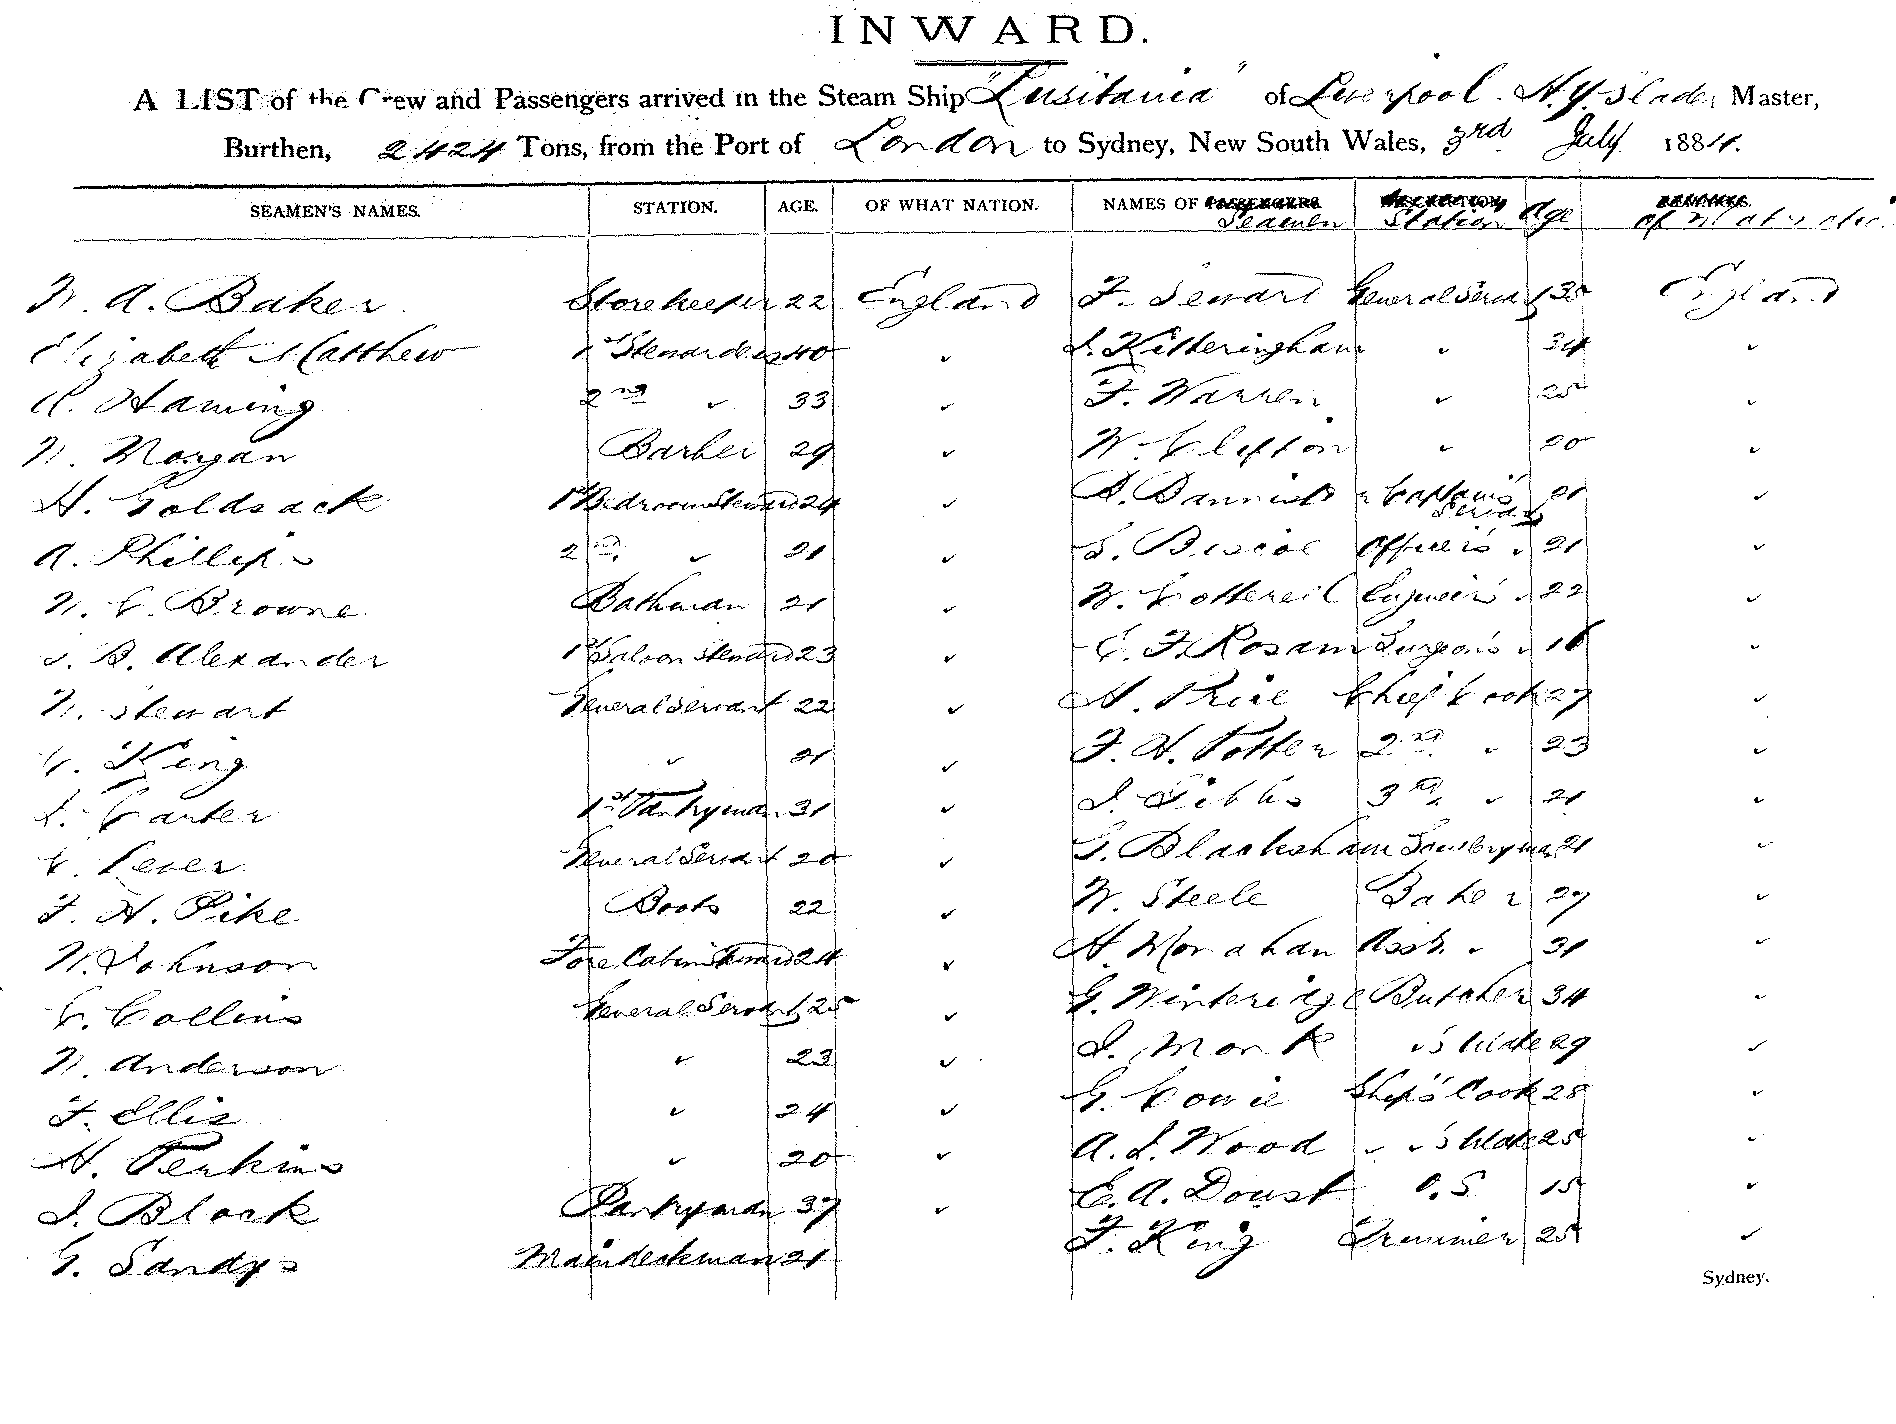 INWARD.
A LIST of the Crew and Passengers arrived in the Steam Ship "Lusitania" of Liverpool. A.Y. Slader Master,
Burthen, 2424 Tons, from the Port of London to Sydney, New South Wales, 3rd July 1884.
SEAMEN'S NAMES. STATION. AGE. OF WHAT NATION. NAMES OF Seamen Station Age of What natio
W. A. Baker Storekeeper 22 England F. Sewart General Servant England
Elizabeth Matthew 1st Stewardess 40 " Kitteringham " 34 "
Haming 2nd " 33 " F. Warren " 25 "
W. Morgan Barber 29 " W. Clifton " 20 "
H. Goldsack 1st Bedroom Steward 24 " Captain's Servant 21 "
A. Phillips 2nd " 21 " S. Biscoe Officers " 21 "
W. C. Browne Bathman 21 " W. Cottereil Engineers' " 22 "
B. Alexander 1st Saloon Steward 23 " C. F. Rosam Surgeon's " 16 "
W. Stewart General Servant 22 " H. Price Chief Cook 27 "
C. King " 21 " F. H. Potter 2nd " 23 "
Carter 1st Pantryman 31 " J. Gibbs 3rd " 21 "
C. Lever General Servant 20 " G. Blacksham 21 "
F. H. Pike Boots 22 " W. Steele Baker 27 "
W. Johnson Fore Cabin Steward 24 " H. Monahan Asst. " 31 "
C. Collins General Servant 25 " G. Winteridge Butcher 34 "
W. Anderson " 23 " J. Monk "s Mate 29 "
F. Ellis " 24 " G. Cowie Ship's Cook 28 "
H. Perkins " 20 " A. J. Wood " "s Mate 25 "
J. Block Pantryman 37 " E. A. Doust O.S. 15 "
G. Sandys Maindeckman 21 F. King Trimmer 25 "
Sydney.